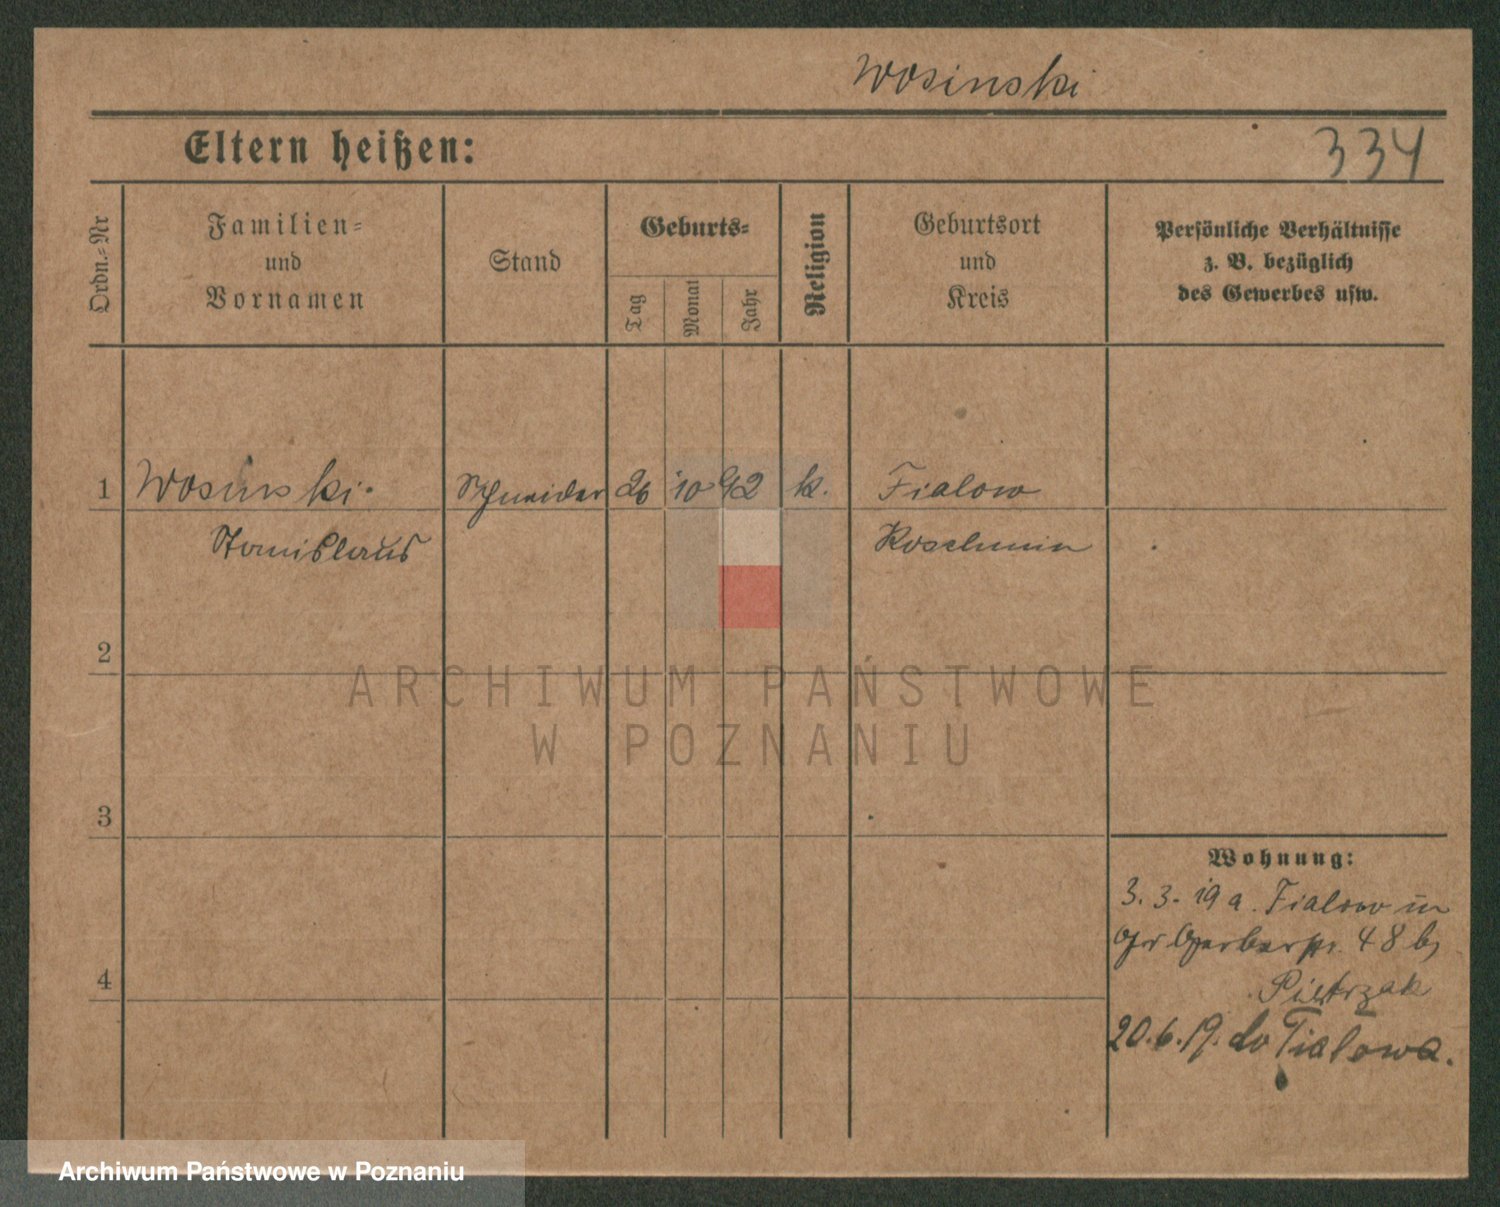 Wosinski
Eltern heißen:
334
Ordn.=Nr
Familien=
und
Vornamen
Stand
Geburts=
Tag
Monat
Jahr
Religion
Geburtsort
und
Kreis
Persönliche Verhältnisse
z. B. bezüglich
des Gewerbes usw.
1 Wosinski. Schneider 26 10 92 k. Fialow
Stanislaus Koschmin
2
3
4
Wohnung:
3. 3. 19 a. Fialow in
Gr Gerberstr. 48 b,
Pietrzak
20.6.19. do Fialowa.
ARCHIWUM PAŃSTWOWE
W POZNANIU
Archiwum Państwowe w Poznaniu